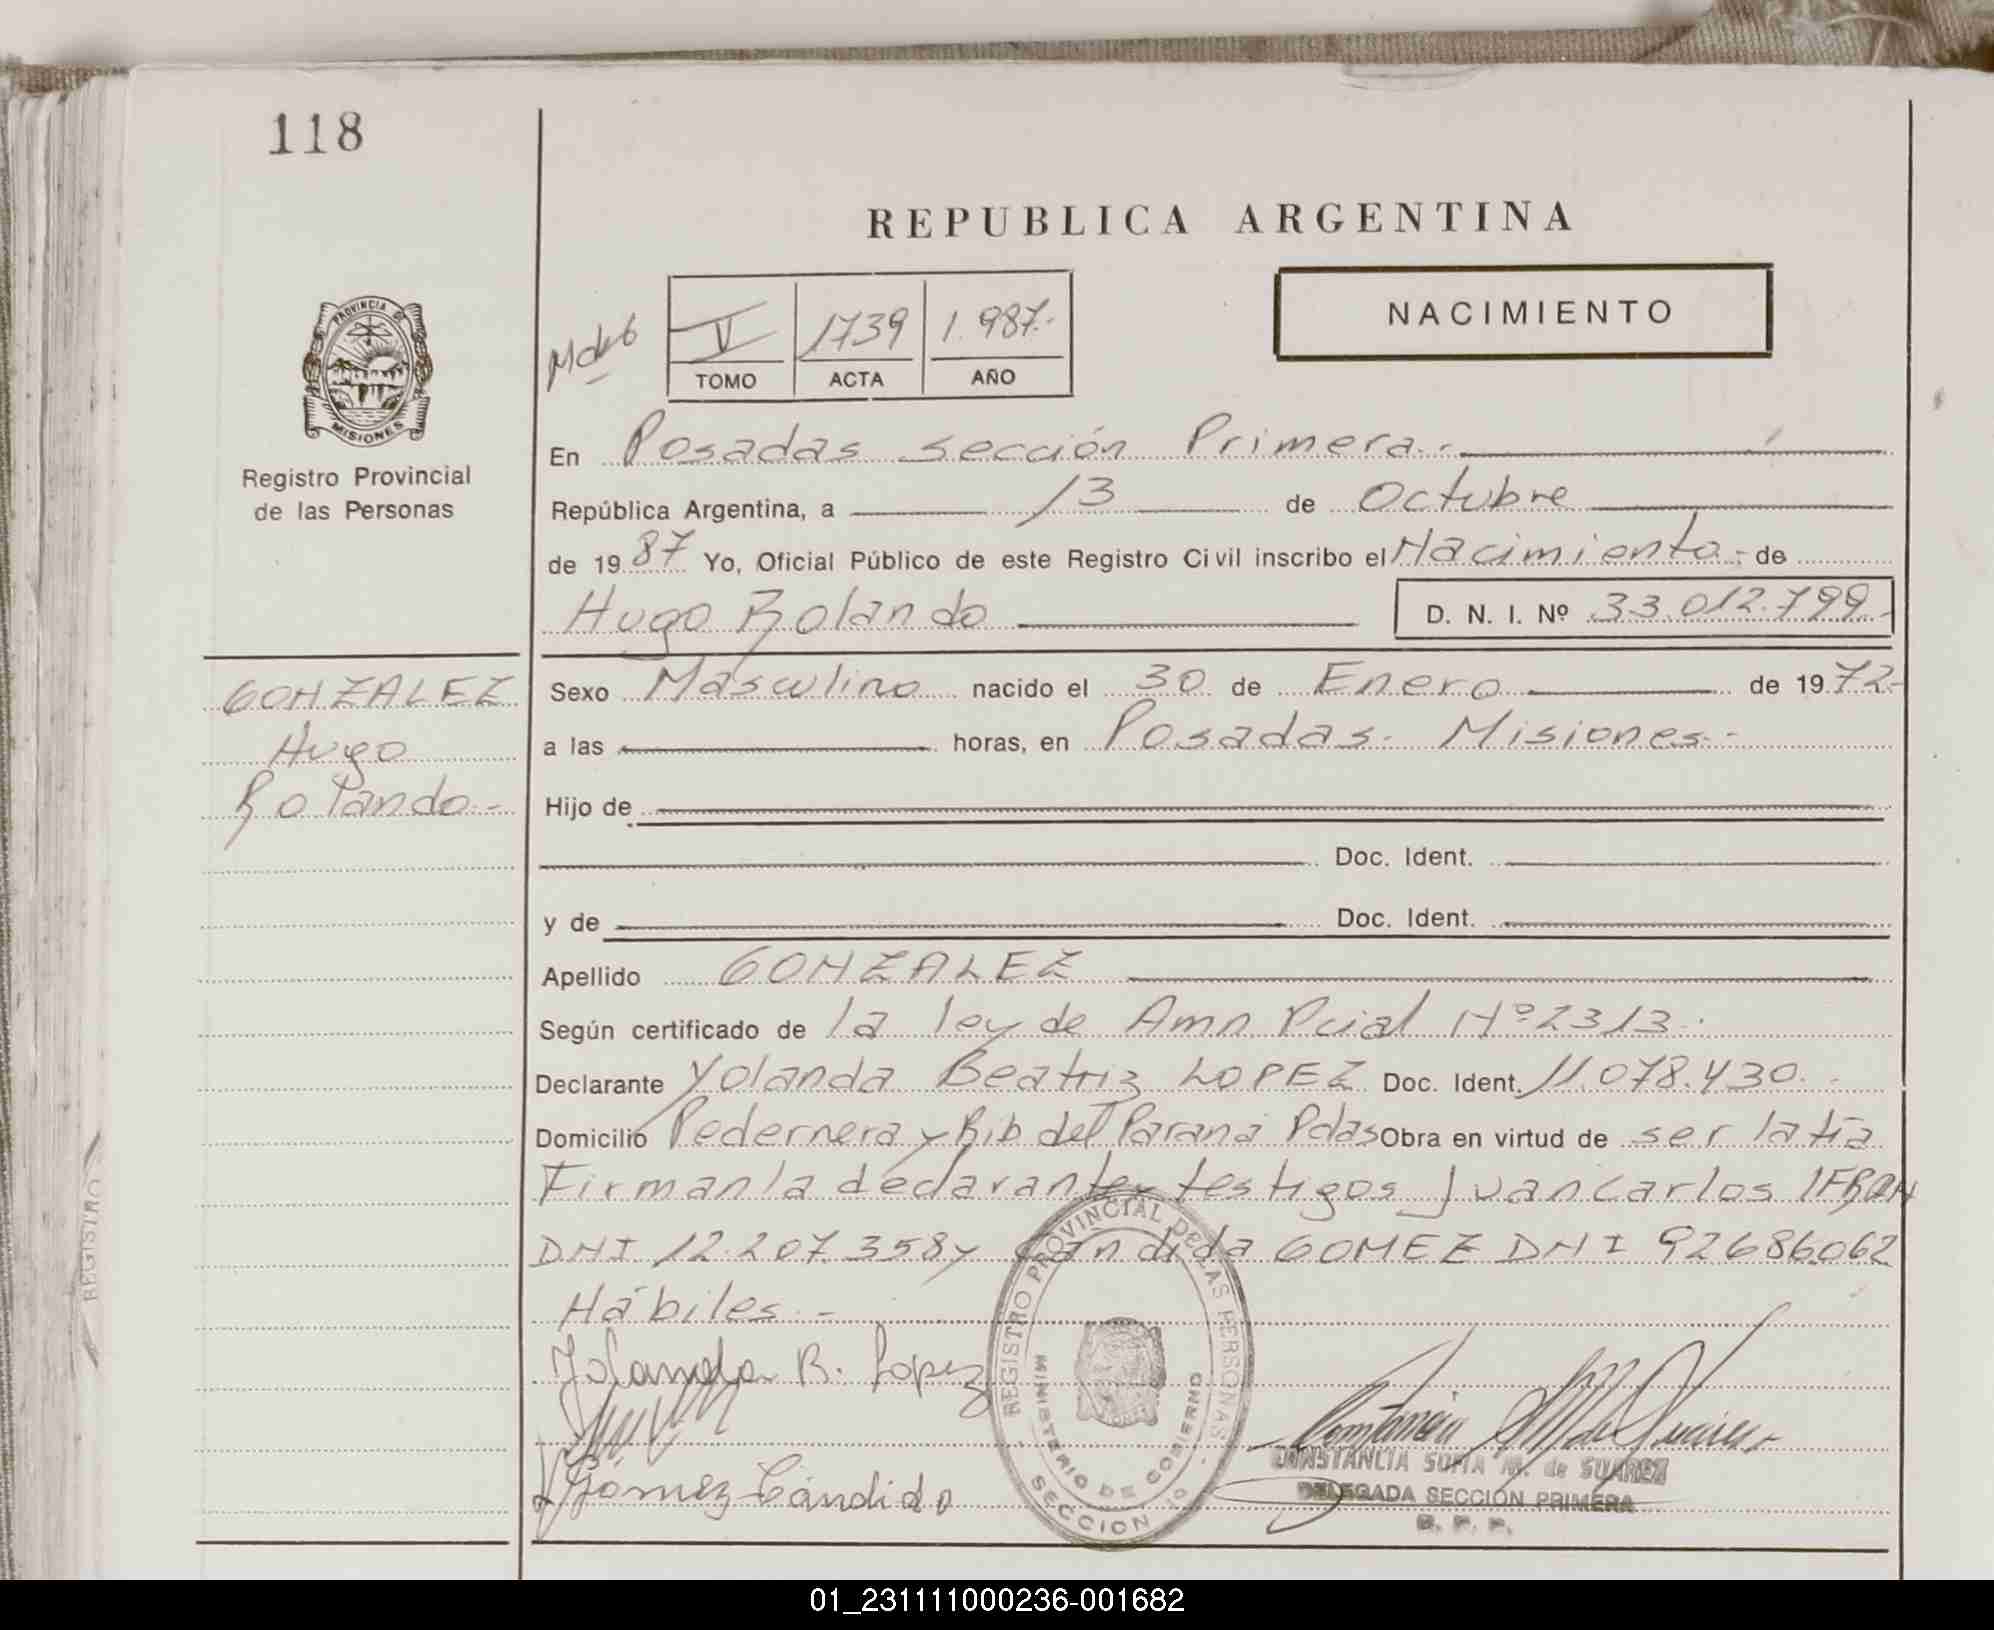 118
REPUBLICA ARGENTINA
PROVINCIA DE
MISIONES
Registro Provincial
de las Personas
NACIMIENTO
V 1739 1.987.-
TOMO ACTA AÑO
En Posadas sección Primera.-
República Argentina, a 13 de Octubre
de 1987 Yo, Oficial Público de este Registro Civil inscribo el Nacimiento.- de
Hugo Rolando D. N. I. Nº 33.012.799.-
GONZALEZ
Hugo
Rolando.-
Sexo Masculino nacido el 30 de Enero de 1972-
a las horas, en Posadas. Misiones.-
Hijo de
Doc. Ident.
y de Doc. Ident.
Apellido GONZALEZ
Según certificado de la ley de Amn Pcial Nº 2313.
Declarante Yolanda Beatriz LOPEZ Doc. Ident. 11.078.430.-
Domicilio Pedernera y Rib del Paraná Pdas Obra en virtud de ser la tía
Firman la declarante y testigos Juan Carlos IFRAN
DNI 12.207.358 y Cándida GOMEZ DNI 92686.062
Hábiles.-
Yolanda B. Lopez
Gómez Cándido
REGISTRO PROVINCIAL DE LAS PERSONAS
MINISTERIO DE GOBIERNO
SECCION 1º
CONSTANCIA SOFIA M. de SUAREZ
DELEGADA SECCIÓN PRIMERA
R. P. P.
REGISTRO
01_231111000236-001682